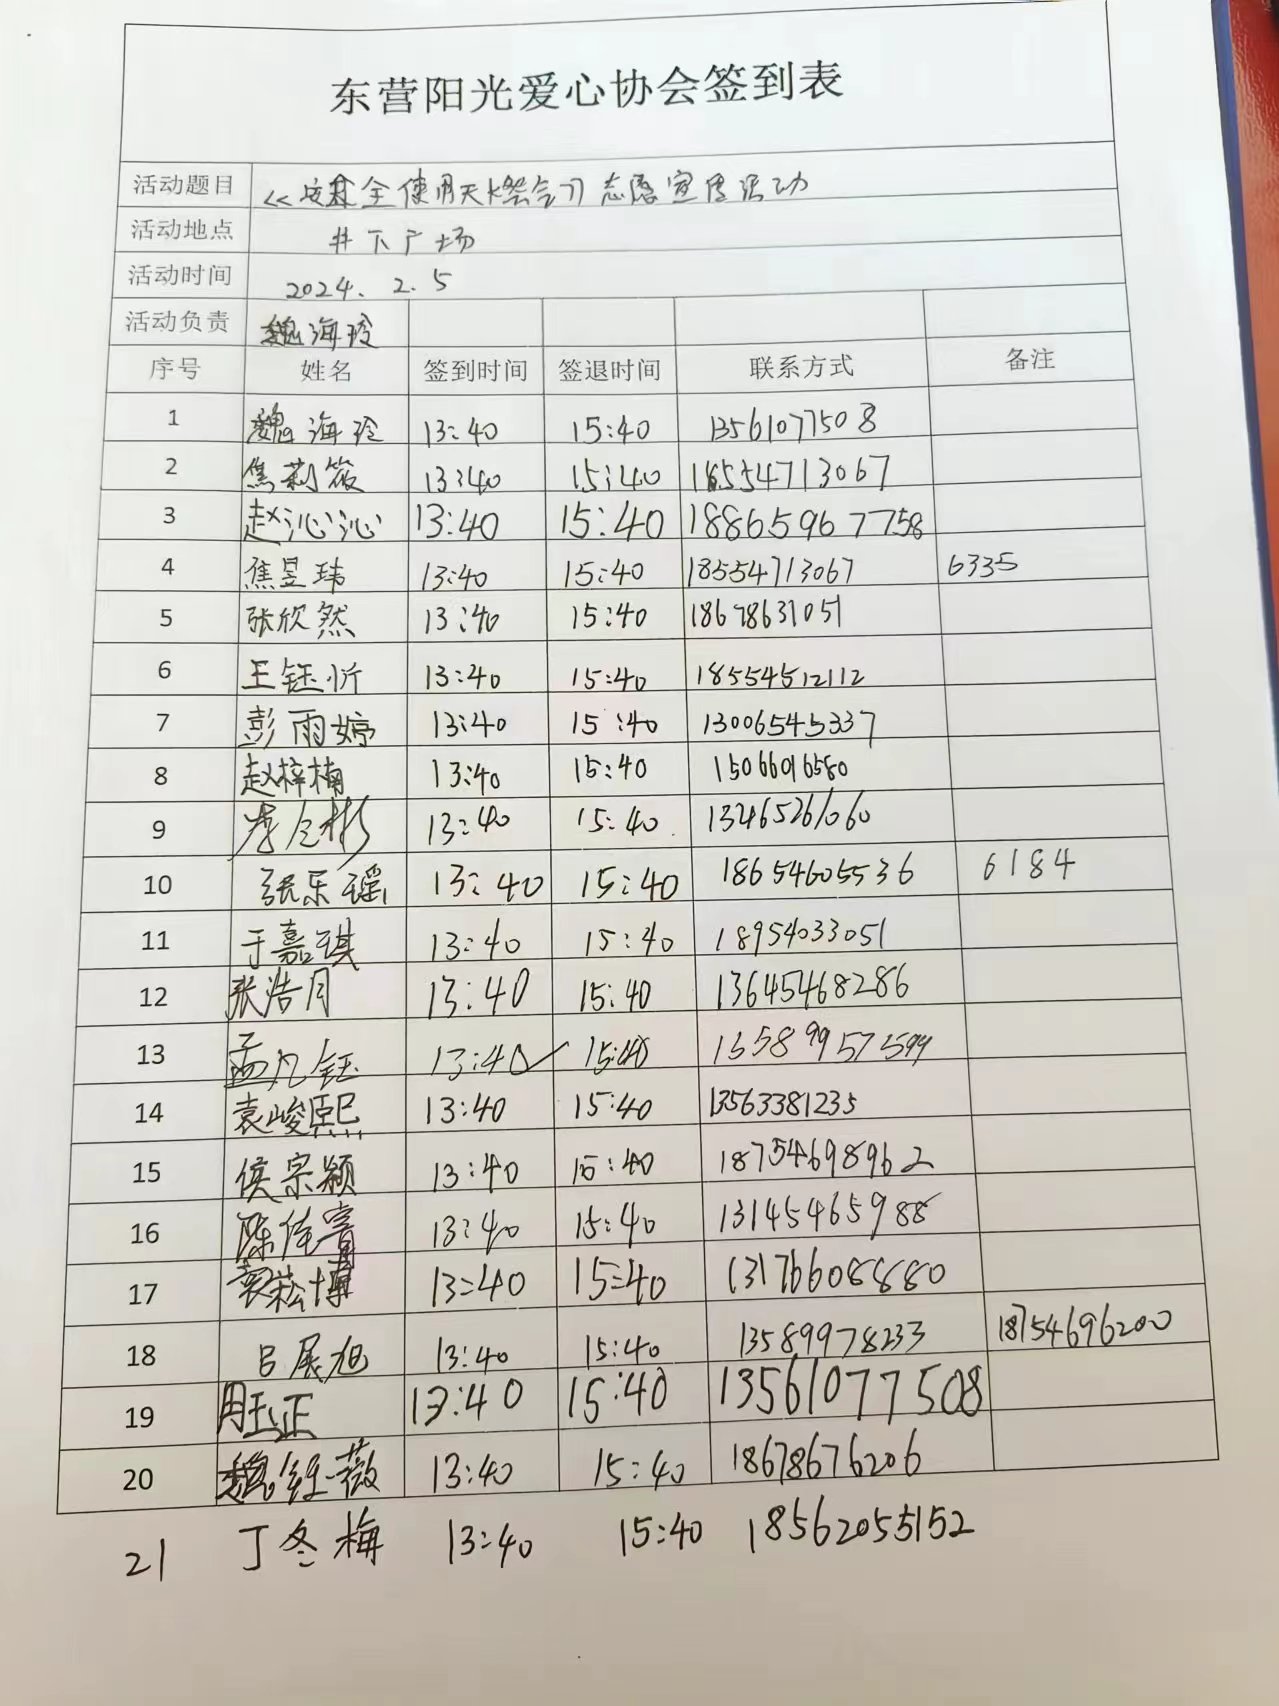 东营阳光爱心协会签到表
活动题目 《安全使用天燃气》志愿宣传活动
活动地点 井下广场
活动时间 2024.2.5
活动负责 魏海玲
序号 姓名 签到时间 签退时间 联系方式 备注
1 魏海玲 13:40 15:40 13561077508
2 焦莉筱 13:40 15:40 18554713067
3 赵沁沁 13:40 15:40 18865967758
4 焦昱玮 13:40 15:40 18554713067 6335
5 张欣然 13:40 15:40 18678631051
6 王钰忻 13:40 15:40 18554512112
7 彭雨婷 13:40 15:40 13006545337
8 赵梓楠 13:40 15:40 15066016580
9 13:40 15:40 13465261060
10 张乐瑶 13:40 15:40 18654605536 6184
11 于嘉琪 13:40 15:40 18954033051
12 张浩月 13:40 15:40 13645468286
13 孟凡钰 13:40 15:40
14 袁峻熙 13:40 15:40 13563381235
15 侯宗颖 13:40 15:40 18754698962
16 陈佳睿 13:40 15:40 13145465988
17 袁菘博 13:40 15:40 13176608880
18 吕展旭 13:40 15:40 13589978233 18754696200
19 周玉正 13:40 15:40 13561077508
20 魏经薇 13:40 15:40 18678676206
21 丁冬梅 13:40 15:40 18562055152